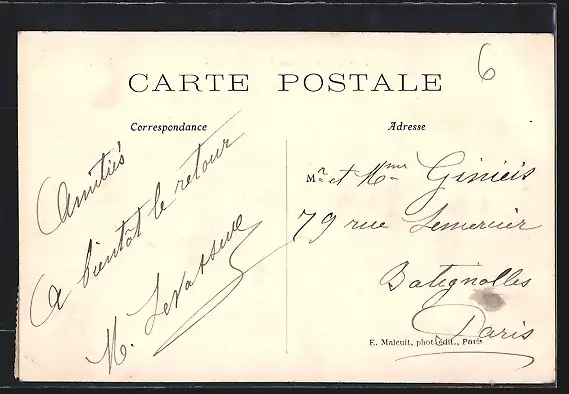 CARTE POSTALE
6
Correspondance
Adresse
Amitiés
A bientôt le retour
M. Levasseur
Mr et Mme Ginieis
79 rue Lemercier
Batignolles
Paris
E. Malcuit, phot. édit., Paris